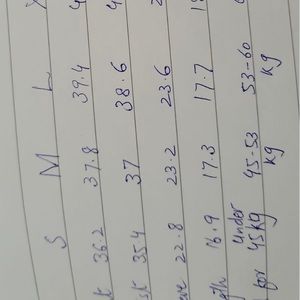 S M L X
36.2 37.8 39.4
st 35.4 37 38.6
eve 22.8 23.2 23.6
16.9 17.3 17.7
for under 45-53 53-60
45kg kg kg